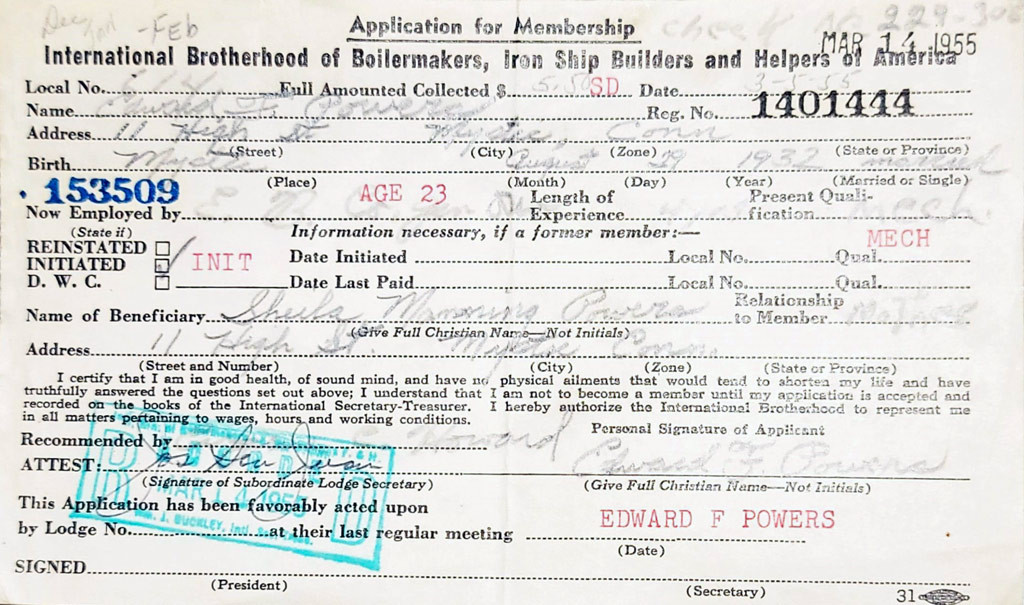 -Feb
Application for Membership
check No 229-308
MAR 14 1955
International Brotherhood of Boilermakers, Iron Ship Builders and Helpers of America
Local No. 614 Full Amounted Collected $ 5.50 SD Date 3-5-55
Name Edward F. Powers Reg. No. 1401444
Address 11 High St Mystic, Conn
(Street) (City) (Zone) (State or Province)
Birth Mystic August 29 1932 married
(Place) (Month) (Day) (Year) (Married or Single)
153509 AGE 23 Length of Experience Present Quali-fication Mech.
Now Employed by E. B.
(State if) Information necessary, if a former member:—
MECH
REINSTATED Date Initiated Local No. Qual.
INITIATED INIT
D. W. C. Date Last Paid Local No. Qual.
Name of Beneficiary Sheila Manning Powers Relationship to Member
(Give Full Christian Name—Not Initials)
Address 11 High St. Mystic Conn.
(Street and Number) (City) (Zone) (State or Province)
I certify that I am in good health, of sound mind, and have no physical ailments that would tend to shorten my life and have
truthfully answered the questions set out above; I understand that I am not to become a member until my application is accepted and
recorded on the books of the International Secretary-Treasurer. I hereby authorize the International Brotherhood to represent me
in all matters pertaining to wages, hours and working conditions.
Personal Signature of Applicant
Recommended by Howard
ATTEST: Edward F Powers
(Signature of Subordinate Lodge Secretary) (Give Full Christian Name—Not Initials)
MAR 14 1955
WM. J. BUCKLEY, Intl. Sec.-Treas.
This Application has been favorably acted upon
EDWARD F POWERS
by Lodge No. at their last regular meeting
(Date)
SIGNED
(President) (Secretary)
31